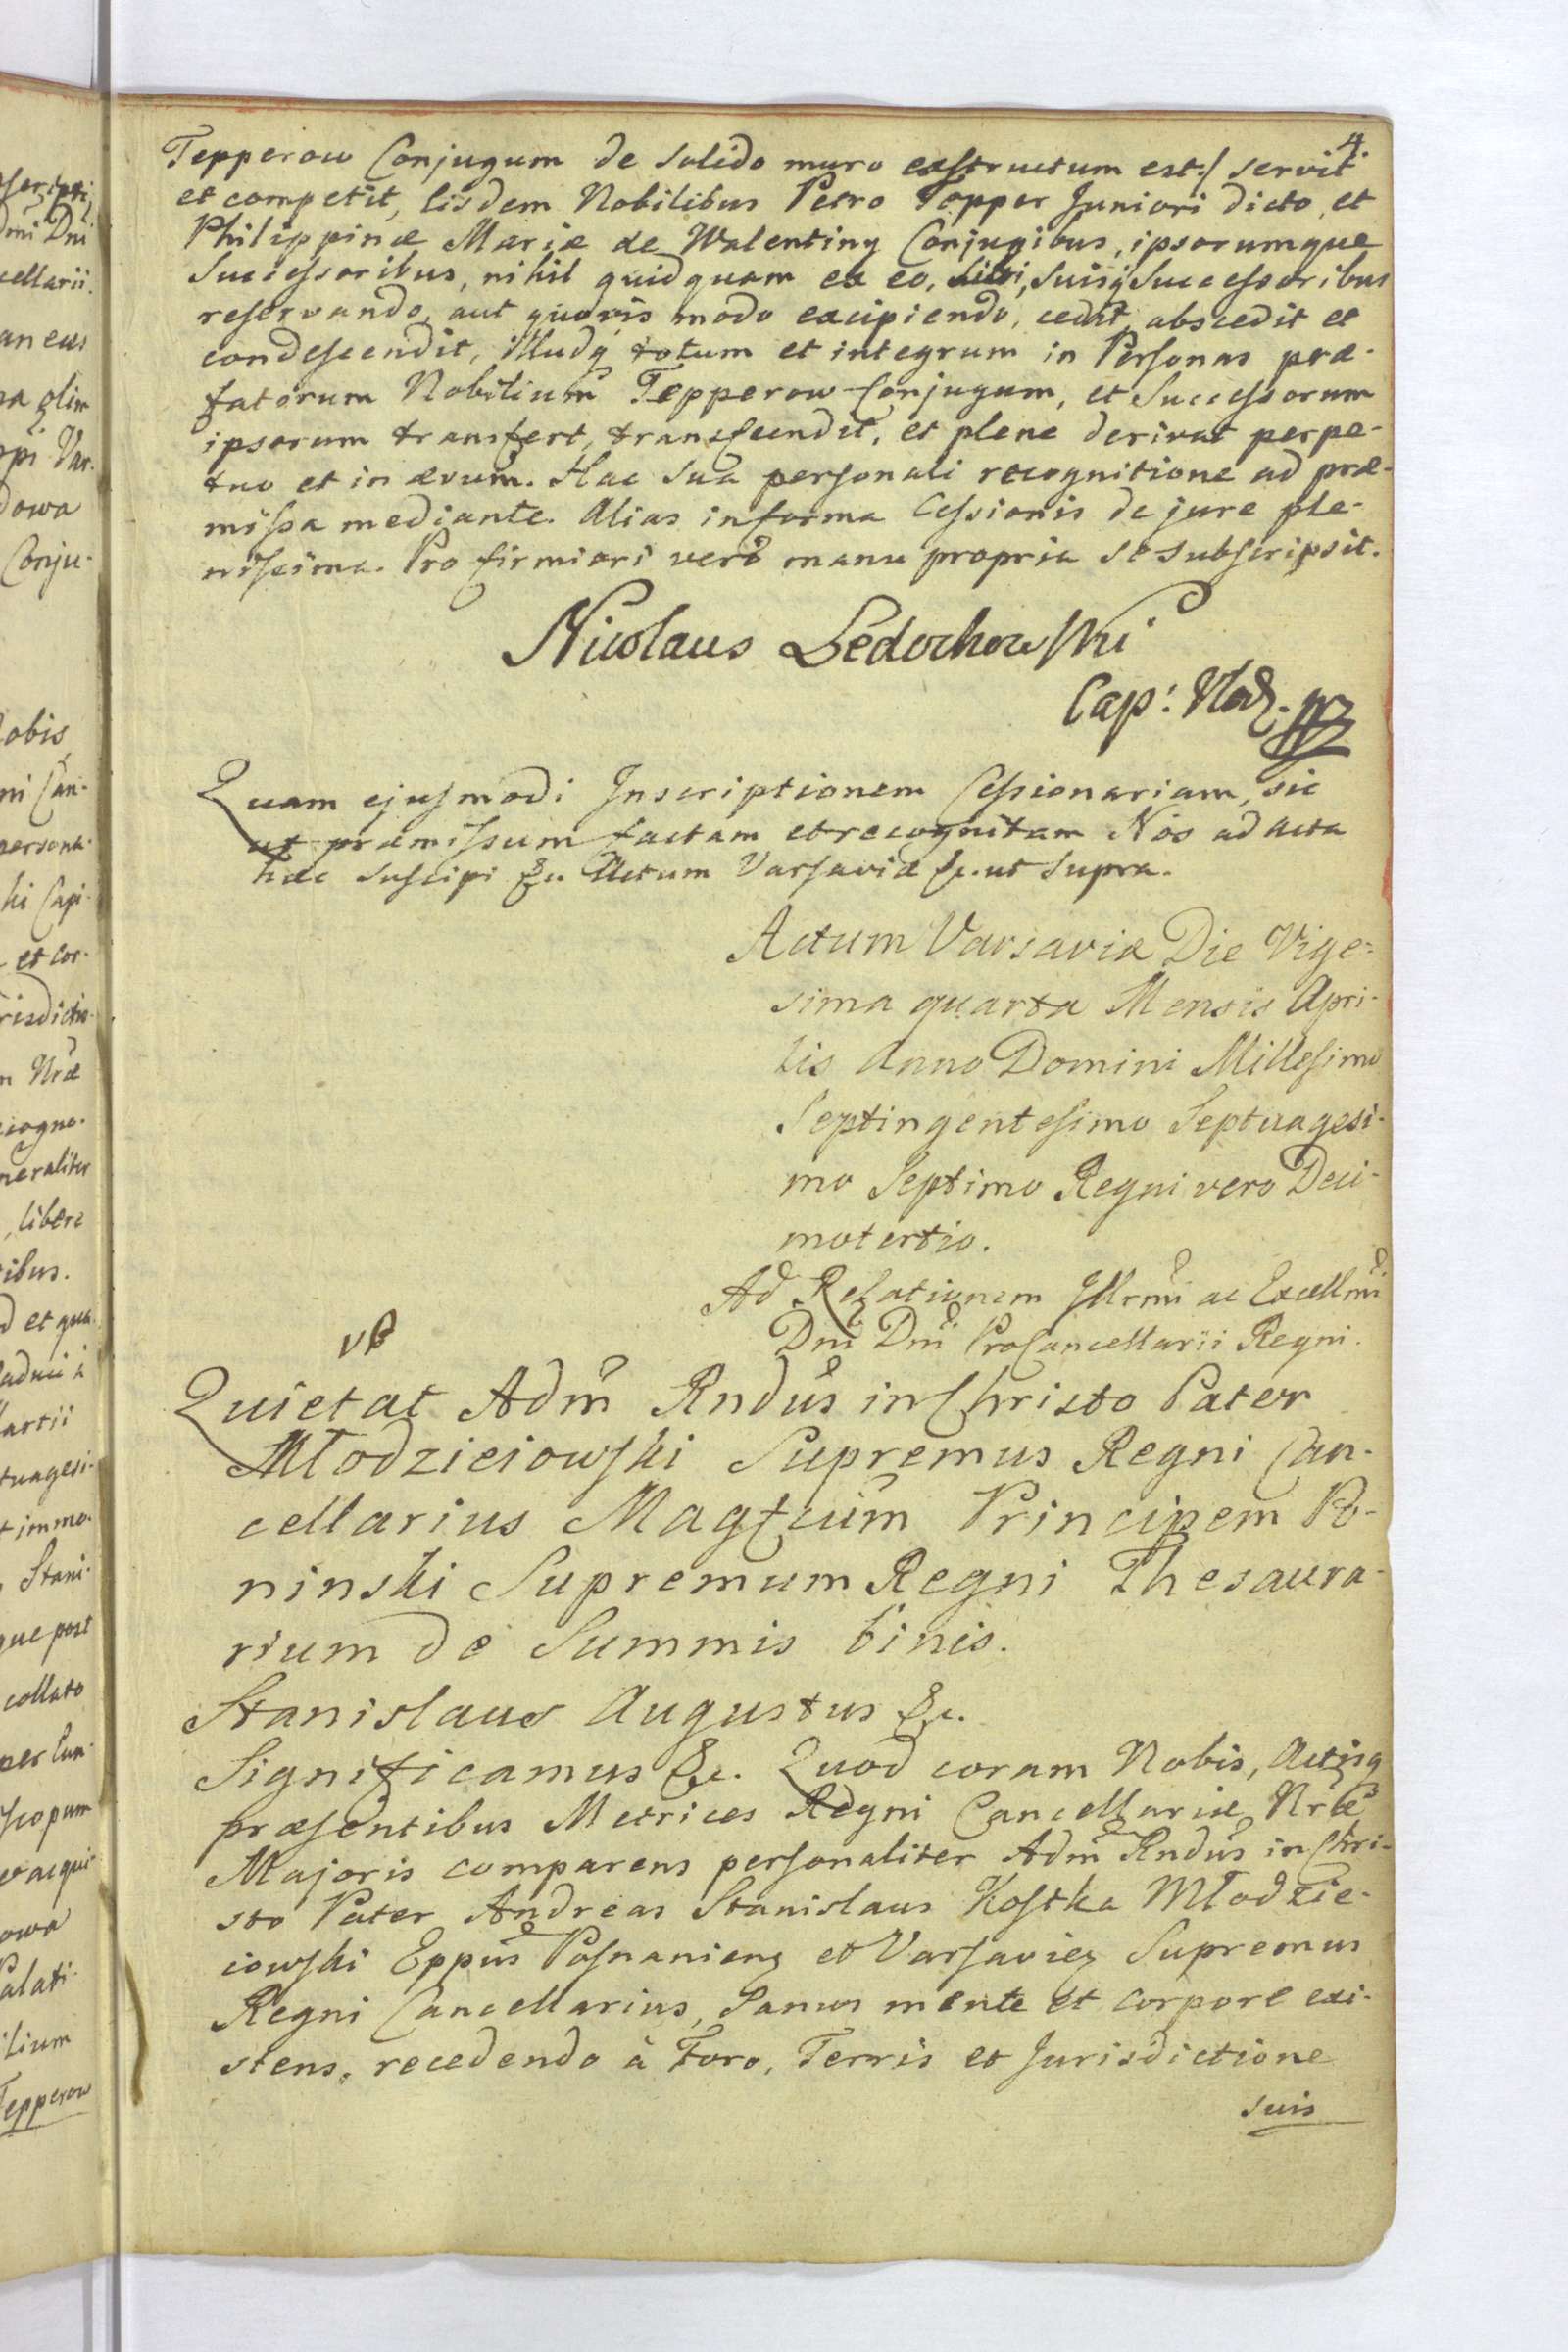 4.
Tepperow Conjugum de solido muro exstructum est:/ servit
et competit, Iisdem Nobilibus Petro Tepper Juniori dicto et
Philippinæ Mariæ de Walentiny Conjugibus, ipsorumque
Successoribus, nihil quidquam ex eo, sibi, suisq Successoribus
reservando, aut quovis modo excipiendo, cedit, abscedit et
condescendit, Illudq totum et integrum in Personas præ-
fatorum Nobilium Tepperow Conjugum, et Successorum
ipsorum transfert, transfundit, et plene derivat perpe-
tuo et in ævum. Hac sua personali recognitione ad præ-
missa mediante. Alias in forma Cessionis de jure ple-
nissima. Pro firmiori verò manu propria se subscripsit.
Nicolaus Ledochowski
Cap: Wlodz.
Quam ejusmodi Inscriptionem Cessionariam, sic
ut præmissum factam et recognitam Nos ad Acta
hæc suscipi &c. Actum Varsaviæ &c. ut supra.
Actum Varsaviæ Die Vige-
sima quarta Mensis Apri-
lis Anno Domini Millesimo
Septingentesimo Septuagesi-
mo Septimo Regni vero Deci-
motertio.
Ad Relationem Illrmi ac Excellmi
Dni Dni ProCancellarii Regni.
Quietat Adm Rndus in Christo Pater
Młodzieiowski Supremus Regni Can-
cellarius Magfcum Principem Po-
ninski Supremum Regni Thesaura-
rium de Summis binis.
Stanislaus Augustus &c.
Significamus &c. Quod coram Nobis, Actisq
præsentibus Metrices Regni Cancellariæ Nræ
Majoris comparens personaliter Adm Rndus in Chri-
sto Pater Andreas Stanislaus Kostka Młodzie-
iowski Eppus Posnaniens et Varsavien Supremus
Regni Cancellarius, Sanus mente et corpore exi-
stens, recedendo à Foro, Terris et Jurisdictione
suis